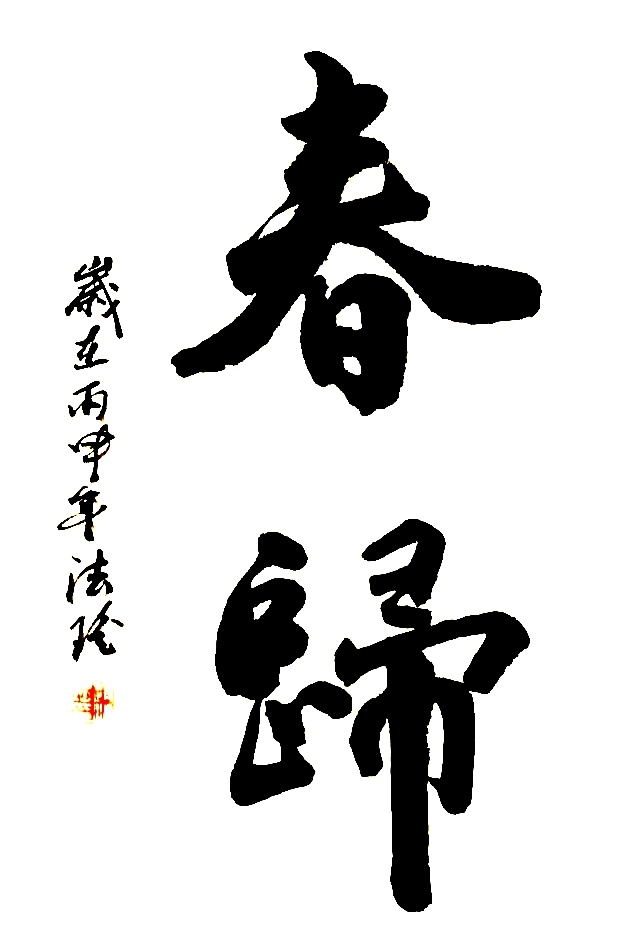 春歸
歲在丙申年法瑜